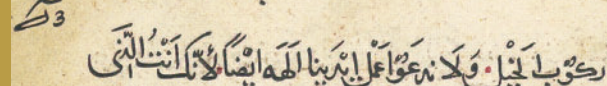 ركوب الخيل. وَلَا ندعوا عَمَل ايْدينا الَهَه ايْضًا. لأنّك اَنْتَ الَّذى